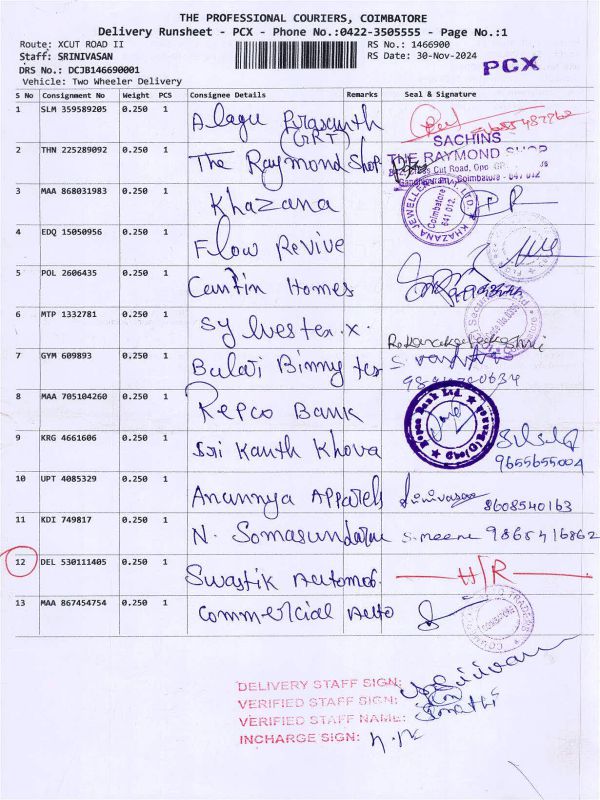 THE PROFESSIONAL COURIERS, COIMBATORE
Delivery Runsheet - PCX - Phone No.:0422-3505555 - Page No.:1
Route: XCUT ROAD II RS No.: 1466900
Staff: SRINIVASAN RS Date: 30-Nov-2024
DRS No.: DCJB146690001 PCX
Vehicle: Two Wheeler Delivery
S No Consignment No Weight PCS Consignee Details Remarks Seal & Signature
1 SLM 359589205 0.250 1 Alagu Prasanth
(GRT)
SACHINS
2 THN 225289092 0.250 1 The Raymond Shop THE RAYMOND SHOP
Cut Road, Opp
Coimbatore - 641 012
3 MAA 868031983 0.250 1 Khazana KHAZANA JEWELLERY PVT. LTD. Coimbatore 641 012.
4 EDQ 15050956 0.250 1 Flow Revive
5 POL 2606435 0.250 1 Cantin Homes
6 MTP 1332781 0.250 1 Sylvester.x.
7 GYM 609893 0.250 1 Balaji Binny tex
8 MAA 705104260 0.250 1 Repco Bank Repco Bank Ltd.
9 KRG 4661606 0.250 1 Sri Kanth Khova
9655655004
10 UPT 4085329 0.250 1 Anannya Apparels Srinivasan 8608540163
11 KDI 749817 0.250 1 N. Somasundaram S. meena 9865416862
12 DEL 530111405 0.250 1 Swastik Automob. H/R
13 MAA 867454754 0.250 1 Commercial Auto
DELIVERY STAFF SIGN: Srinivasan
VERIFIED STAFF SIGN:
VERIFIED STAFF NAME:
INCHARGE SIGN: